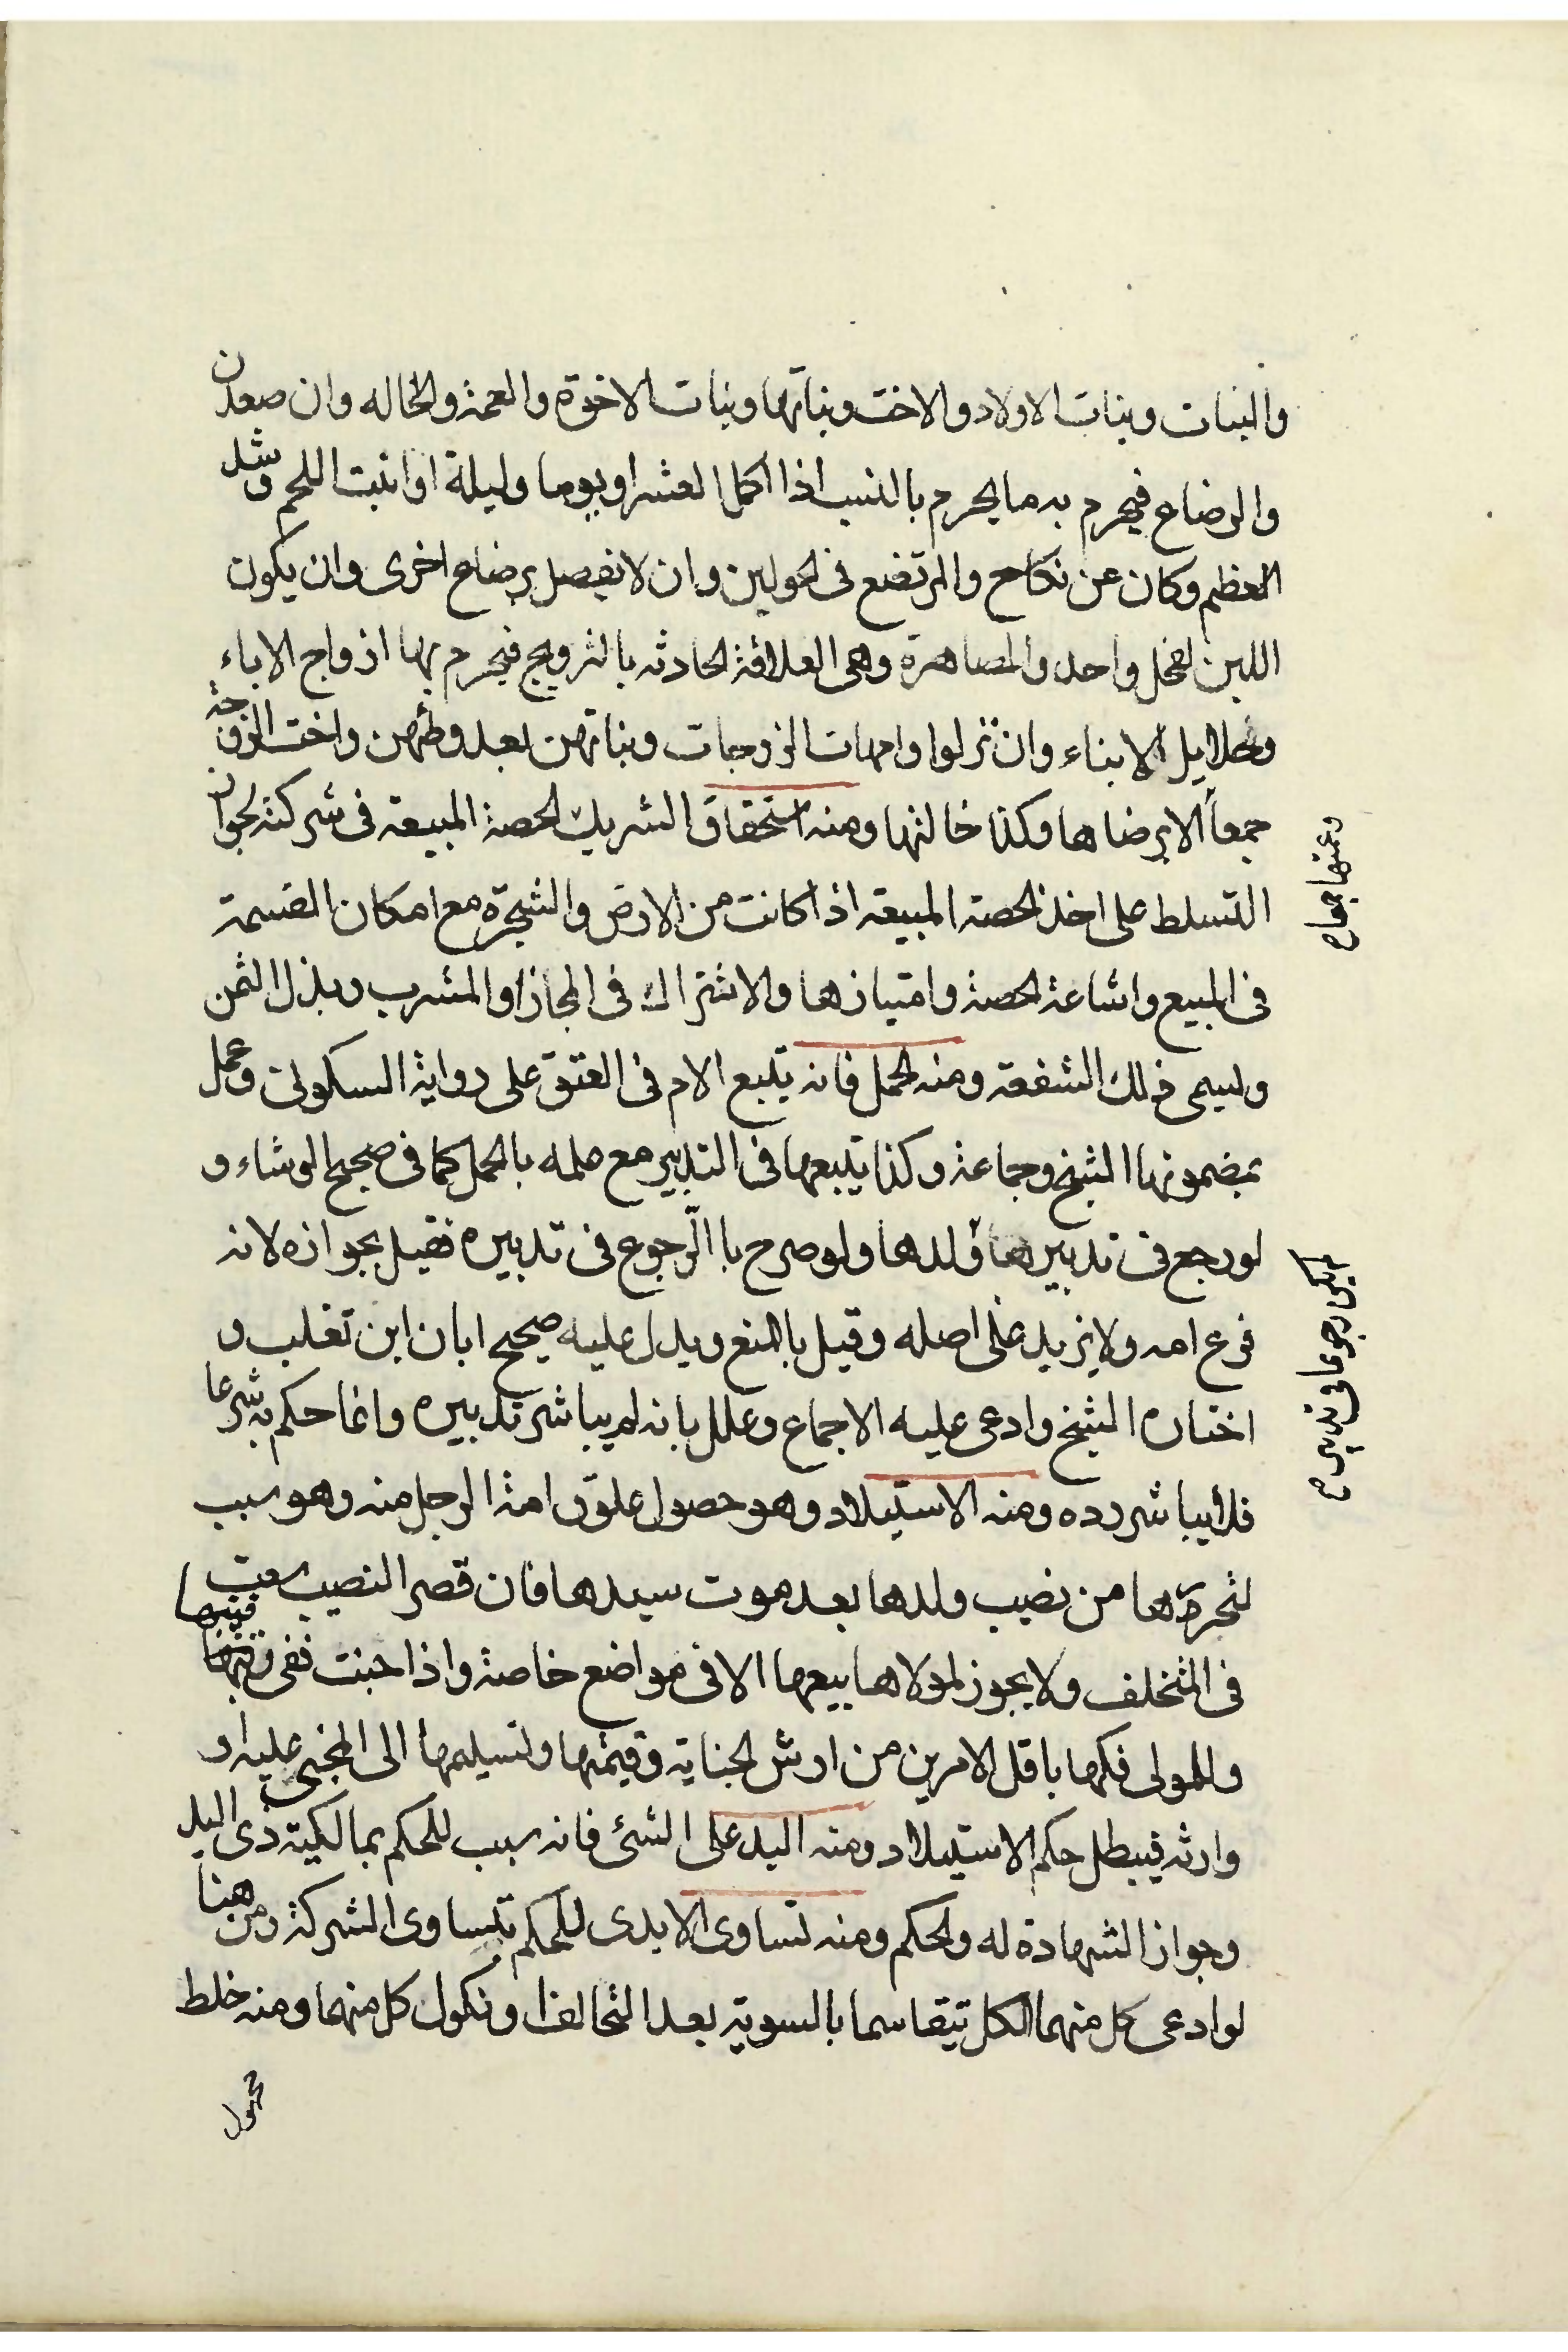 والبنات وبنات الاولاد والاخت وبناتها وبنات الاخوة والعمة والخاله وان صعدن
والرضاع فيحرم به ما يحرم بالنسب اذا اكمل العشر او يوما وليلة او انبت اللحم وشد
العظم وكان عن نكاح والمرتضع فى الحولين وان لا يفصل برضاع اخرى وان يكون
اللبن لفحل واحد والمصاهرة وهى العلاقة الحادثه بالتزويج فيحرم بها ازواج الاباء
وحلايل الابناء وان نزلوا وامهات الزوجات وبناتهن بعد وطئهن واخت الزوجة
جمعاً الا برضاها وكذا خالتها ومنه استحقاق الشريك الحصة المبيعة فى شركته بجواز
التسلط على اخذ الحصة المبيعة اذا كانت من الارض والشجرة مع امكان القسمة
فى المبيع واشاعة الحصة وامتيازها والاشتراك فى المجاز او المشرب وبذل الثمن
وليسمى ذلك الشفعة ومنه الحمل فانه يتبع الام فى العتق على رواية السكونى وعمل
بمضمونها الشيخ وجماعة وكذا يتبعها فى التدبير مع علمه بالحمل كما فى صحيح الوشاء و
لو رجع فى تدبيرها ولدها ولو صرح با الرجوع فى تدبيره فقيل بجوازه لانه
فرع امه ولا يزيد على اصله وقيل بالمنع ويدل عليه صحيح ابان ابن تغلب و
اختاره الشيخ وادعى عليه الاجماع وعلل بانه لم يباشر تدبيره وانما حكم به شرعا
فلا يباشر رده ومنه الاستيلاد وهو حصول علوق امة الرجل منه وهو سبب
لتحريرها من نصيب ولدها بعد موت سيدها فان قصر النصيب سعت
فى المتخلف ولا يجوز لمولاها بيعها الا فى مواضع خاصة واذا جنت ففى رقبتها
وللمولى فكها باقل الامرين من ارش الجناية وقيمتها وتسليمها الى المجنى عليه او
وارثه فيبطل حكم الاستيلاد ومنه اليد على الشئ فانه سبب للحكم بمالكية ذى اليد
وجواز الشهادة له والحكم ومنه تساوى الايدى للحكم بتساوى الشركة ومن هنا
لو ادعى كل منهما الكل تيقاسما بالسوية بعد التحالف او نكول كل منهما ومنه خلط
وعمتها جمعا
لم يكن رجوعا فى تدبير